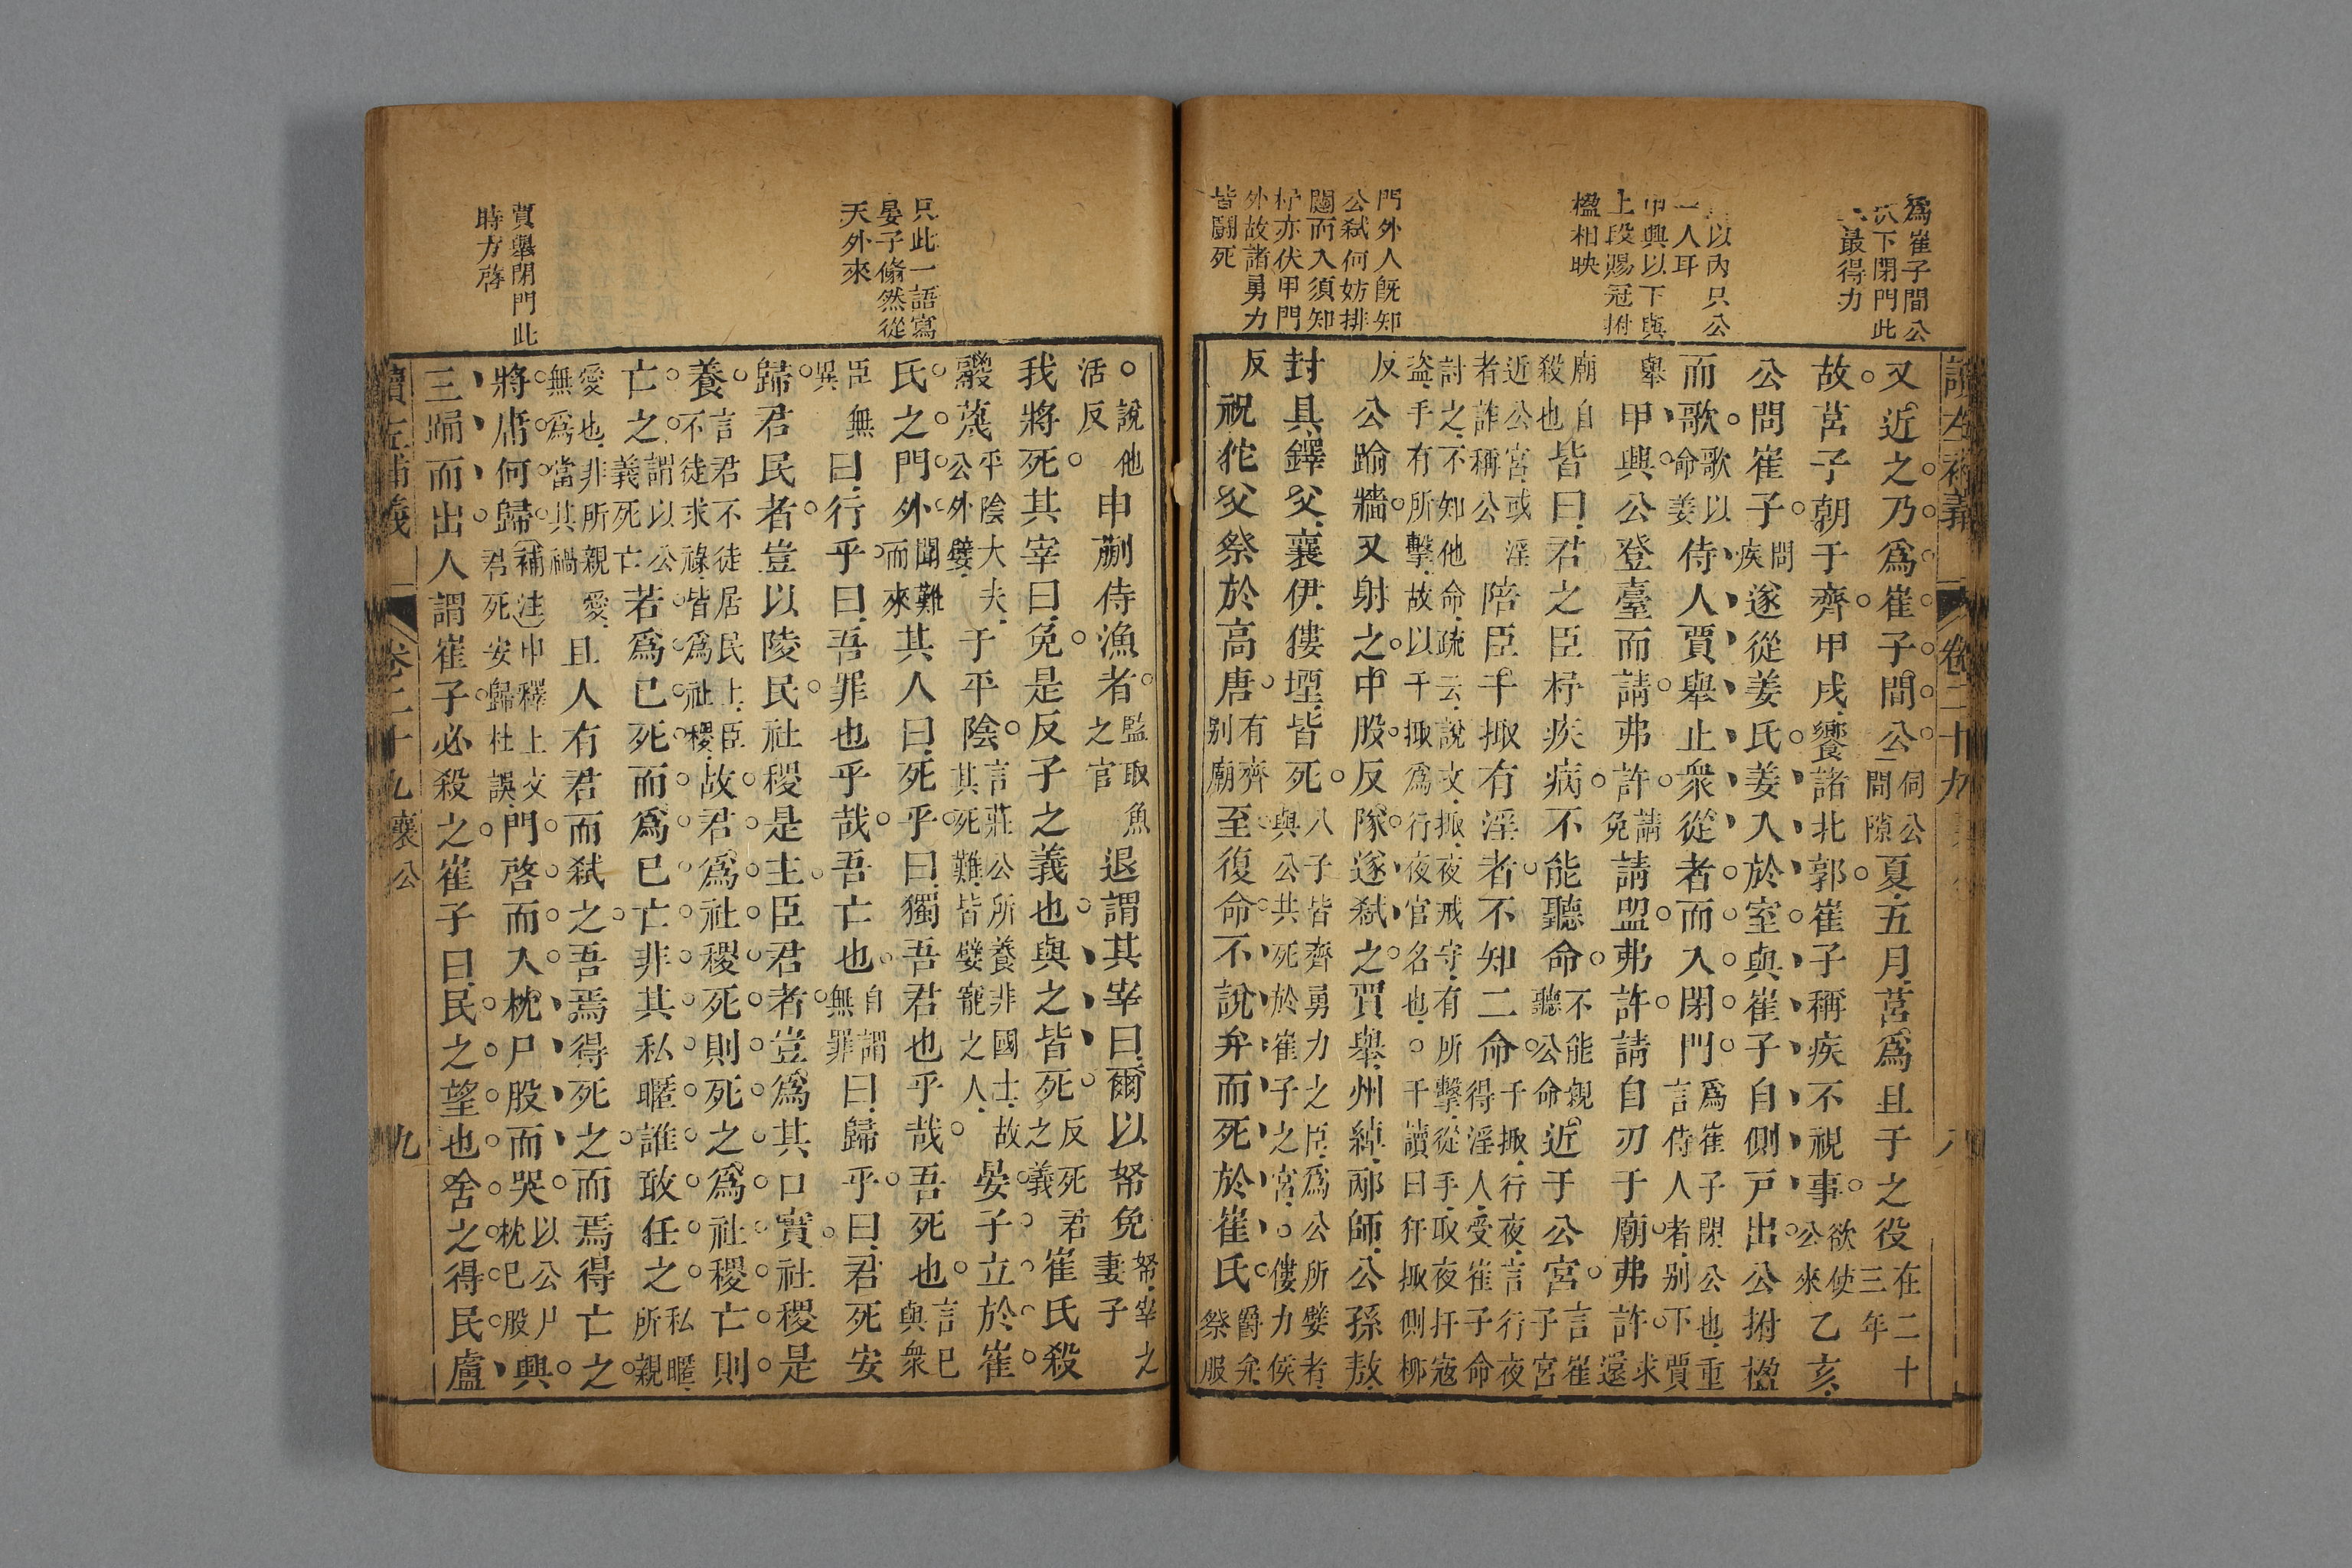 爲崔子間公
下閉門此
最得力
以內只公
一人耳
甲興以下與
上段賜冠拊
楹相映
門外人既知
公弑何妨排
闥而入須知
杼亦伏甲門
外故諸勇力
皆鬭死
讀左補義 卷二十九 八
又近之乃爲崔子間公伺公間隙夏五月莒爲且于之役在二十三年
故莒子朝于齊甲戌饗諸北郭崔子稱疾不視事欲使公來乙亥
公問崔子問疾遂從姜氏姜入於室與崔子自側戸出公拊楹
而歌歌以命姜侍人賈舉止衆從者而入閉門爲崔子閉公也重言侍人者别下賈
舉甲興公登臺而請弗許請免請盟弗許請自刃于廟弗許求還
廟自殺也皆曰君之臣杼疾病不能聽命不能親聽公命近于公宮言崔子宮
近公宮或淫者詐稱公陪臣干掫有淫者不知二命干掫行夜言行夜得淫人受崔子命
討之不知他命疏云說文掫夜戒守有所擊從手取夜扞寇
盜手有所擊故以干掫爲行夜官名也○干讀曰犴掫側柳
反公踰牆又射之中股反隊遂弑之賈舉州綽邴師公孫敖
封具鐸父襄伊僂堙皆死八子皆齊勇力之臣爲公所嬖者與公共死於崔子之宮○僂力侯
反祝佗父祭於高唐有齊别廟至復命不說弁而死於崔氏爵弁祭服
只此一語寫
晏子翛然從
天外來
賈舉閉門此
時方啓
○說他活反申蒯侍漁者監取魚之官退謂其宰曰爾以帑免帑宰之妻子
我將死其宰曰免是反子之義也與之皆死反死君之義崔氏殺
鬷蔑平陰大夫公外嬖于平陰言莊公所養非國士故其死難皆嬖寵之人晏子立於崔
氏之門外聞難而來其人曰死乎曰獨吾君也乎哉吾死也言己與衆
臣無異曰行乎曰吾罪也乎哉吾亡也自謂無罪曰歸乎曰君死安
歸君民者豈以陵民社稷是主臣君者豈爲其口實社稷是
養言君不徒居民上臣不徒求祿皆爲社稷故君爲社稷死則死之爲社稷亡則
亡之謂以公義死亡若爲己死而爲己亡非其私暱誰敢任之私暱所親
愛也非所親愛無爲當其禍且人有君而弑之吾焉得死之而焉得亡之
將庸何歸補注申釋上文君死安歸杜誤門啓而入枕尸股而哭以公尸枕己股興
三踊而出人謂崔子必殺之崔子曰民之望也舍之得民盧
讀左補義 卷二十九 襄公 九